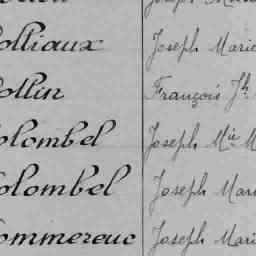 olliaux Joseph Marie
ollin François Jh
olombel Joseph Mie M
olombel Joseph Mari
ommereuc Joseph Mari